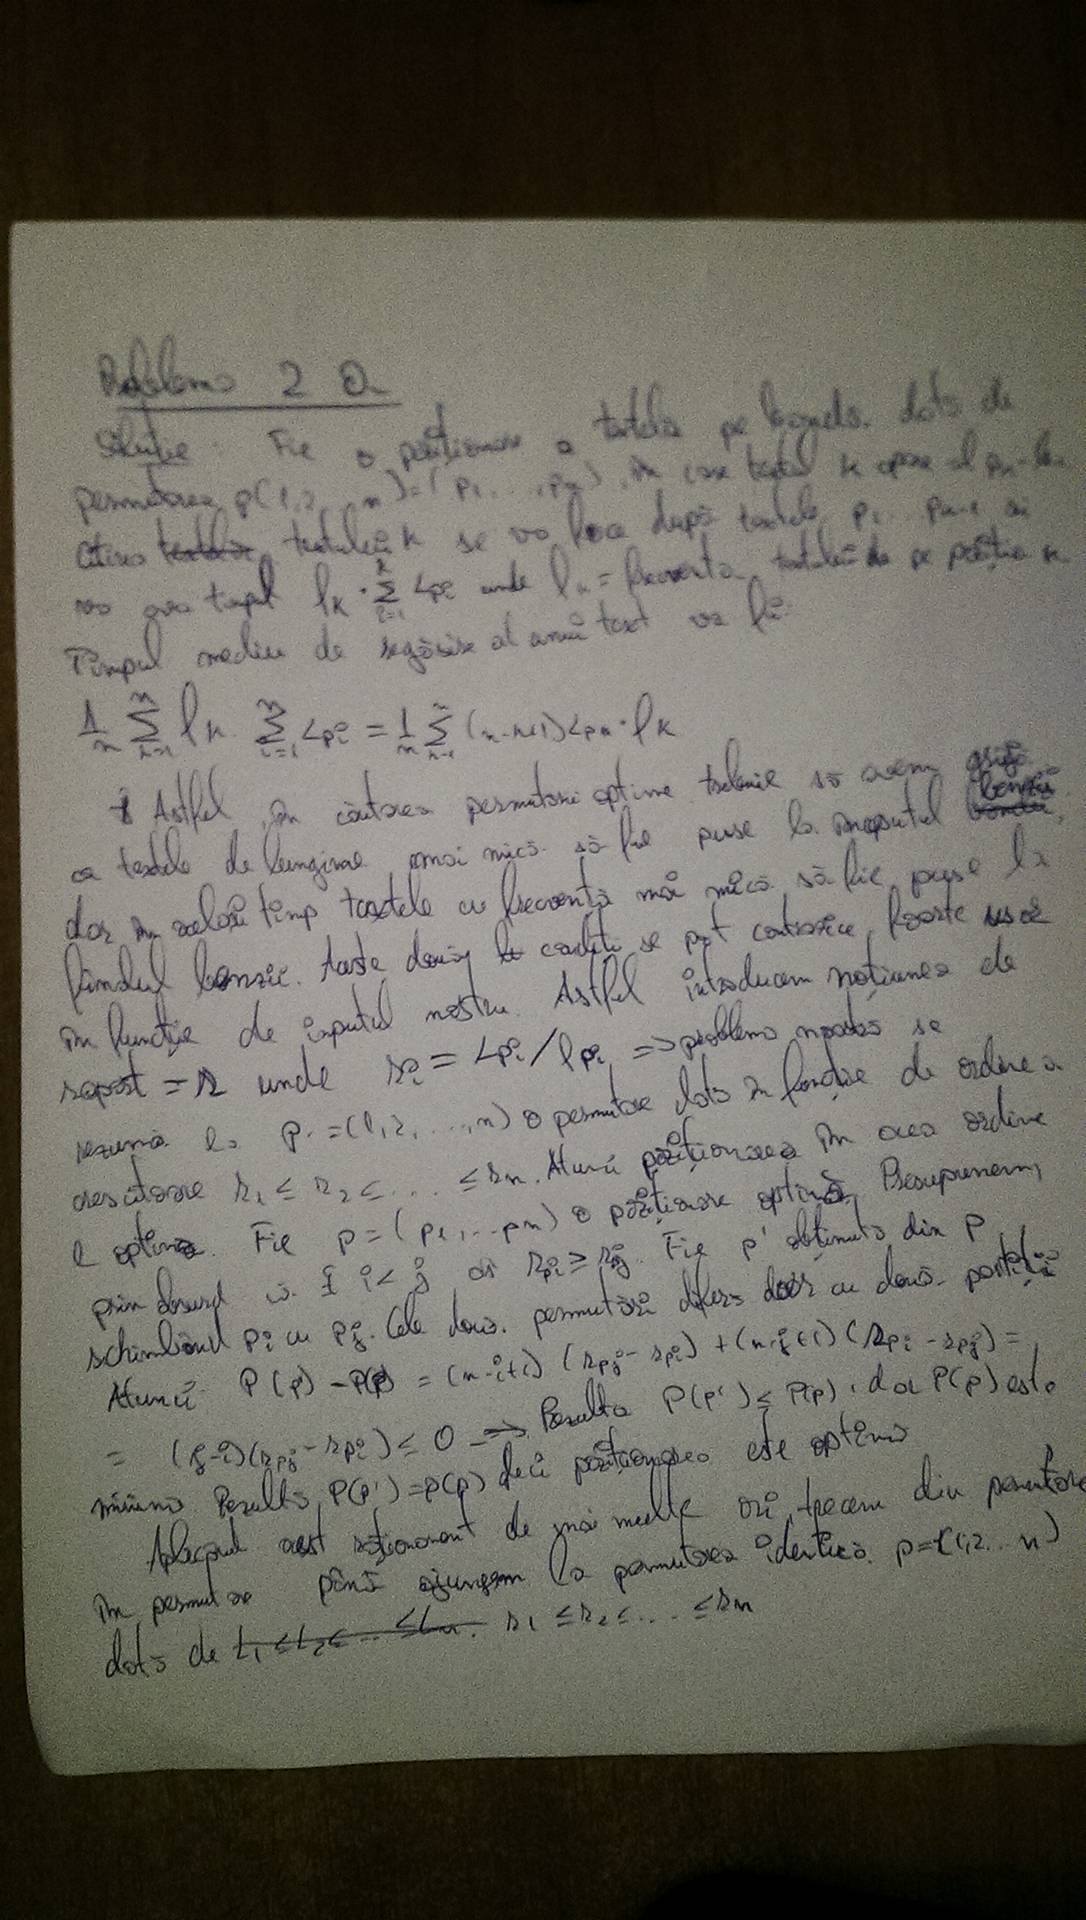 Problema 2 a
Soluție: Fie o poziționare a textelor pe bandă dată de
permutarea p(1,2,..,n)=(p1,...,pn), în care textul k apare al pk-lea
Citirea textului k se va face după textele p1.. pk-1 și
va avea timpul fk · Σ(i=1..k) Lpi unde fk = frecvența textului de pe poziția k
Timpul mediu de regăsire al unui text va fi:
1/n Σ(k=1..n) fk · Σ(i=1..n) Lpi = 1/n Σ(k=1..n) (n-k+1) Lpk · fk
Astfel, în căutarea permutării optime trebuie să avem grijă
ca textele de lungime mai mică să fie puse la începutul benzii,
dar în același timp textele cu frecvență mai mică să fie puse la
fundul benzii. Aceste două condiții se pot contrazice foarte ușor
în funcție de inputul nostru. Astfel introducem noțiunea de
raport = r unde ri = Lpi/fpi => problema noastră se
rezumă la p = (1,2,...,n) o permutare dată în funcție de ordinea
crescătoare r1 ≤ r2 ≤ ... ≤ rn. Atunci poziționarea în acea ordine
e optimă. Fie p = (p1,...pn) o poziționare optimă. Presupunem
prin absurd că ∃ i < j ai rpi ≥ rpj. Fie p' obținută din p
schimbând pi cu pj. Cele două permutări diferă doar cu două poziții
Atunci P(p') - P(p) = (n-i+1) (rpj - rpi) + (n-j+1) (rpi - rpj) =
= (j-i)(rpj - rpi) ≤ 0 => Rezultă P(p') ≤ P(p), dar P(p) este
minimă Rezultă P(p') = P(p) deci poziționarea este optimă
Aplicând acest raționament de mai multe ori, trecem din permutare
în permutare până ajungem la permutarea identică p=(1,2...n)
dată de L1 ≤ L2 ≤ ... ≤ Ln. r1 ≤ r2 ≤ ... ≤ rn